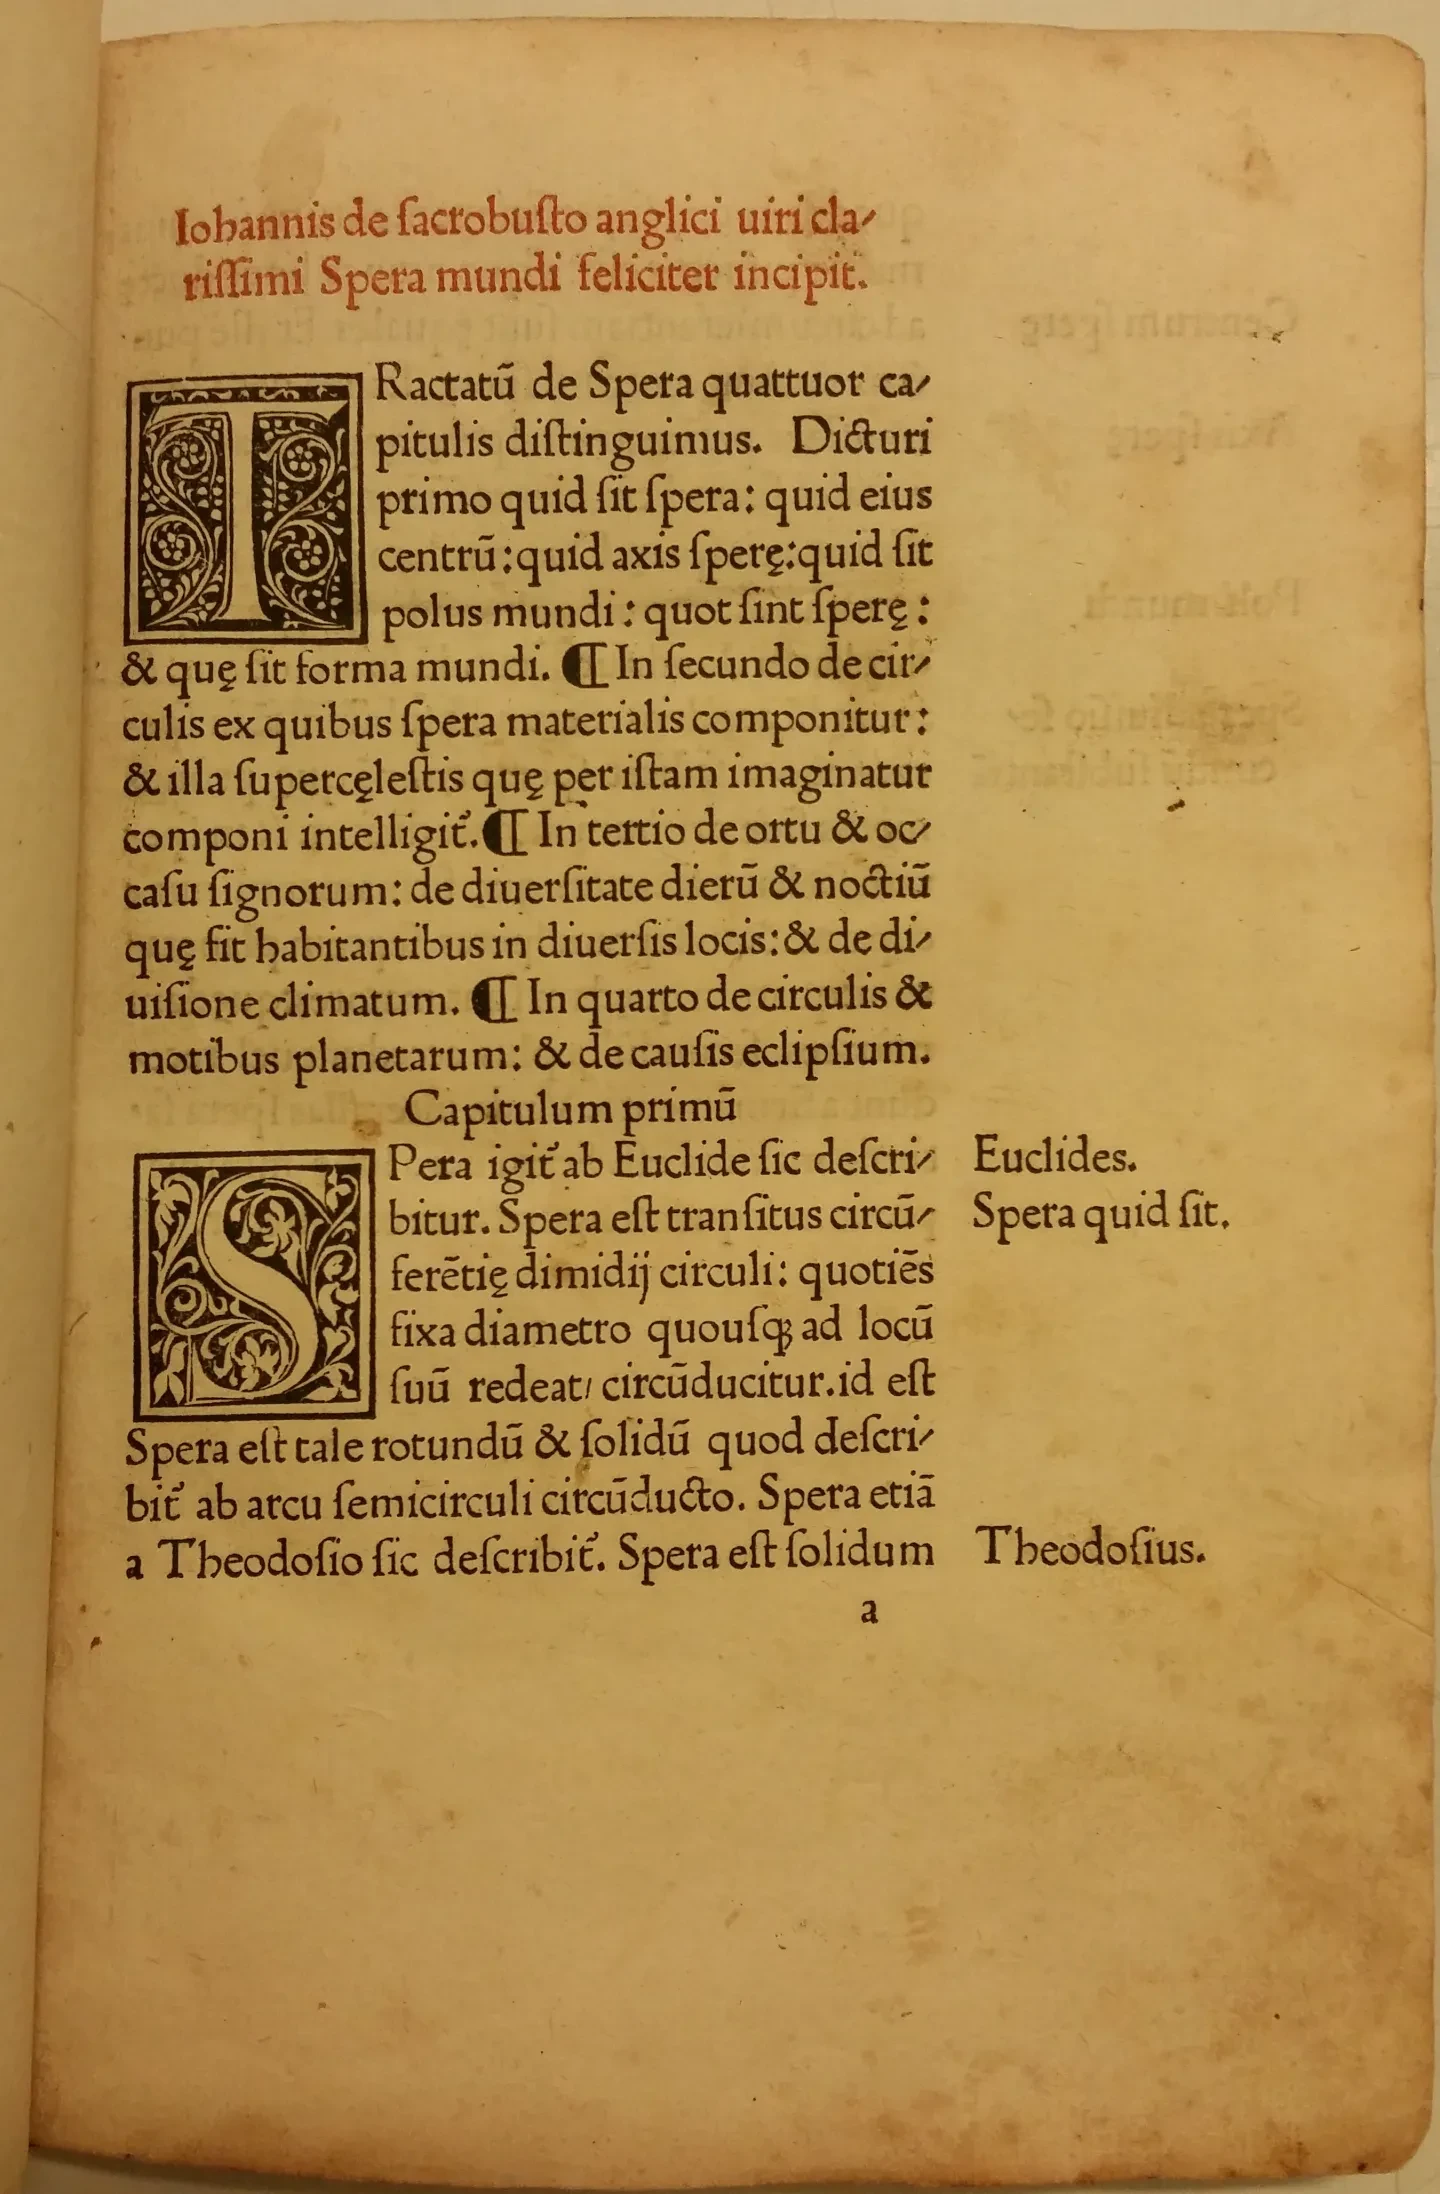 Iohannis de ſacrobuſto anglici uiri cla⸗
riſſimi Spera mundi feliciter incipit.
TRactatū de Spera quattuor ca⸗
pitulis diſtinguimus. Dicturi
primo quid ſit ſpera: quid eius
centrū: quid axis ſperę: quid ſit
polus mundi: quot ſint ſperę:
& quę ſit forma mundi. ¶ In ſecundo de cir⸗
culis ex quibus ſpera materialis componitur:
& illa ſupercęleſtis quę per iſtam imaginatur
componi intelligit᷑. ¶ In tertio de ortu & oc⸗
caſu ſignorum: de diuerſitate dierū & noctiū
quę fit habitantibus in diuerſis locis: & de di⸗
uiſione climatum. ¶ In quarto de circulis &
motibus planetarum: & de cauſis eclipſium.
Capitulum primū
SPera igit᷑ ab Euclide ſic deſcri⸗
Euclides.
bitur. Spera eſt tranſitus circū⸗
Spera quid ſit.
ferētię dimidij circuli: quotiēs
fixa diametro quouſqꝫ ad locū
ſuū redeat/ circūducitur. id eſt
Spera eſt tale rotundū & ſolidū quod deſcri⸗
bit᷑ ab arcu ſemicirculi circūducto. Spera etiā
a Theodoſio ſic deſcribit᷑. Spera eſt ſolidum
Theodoſius.
a